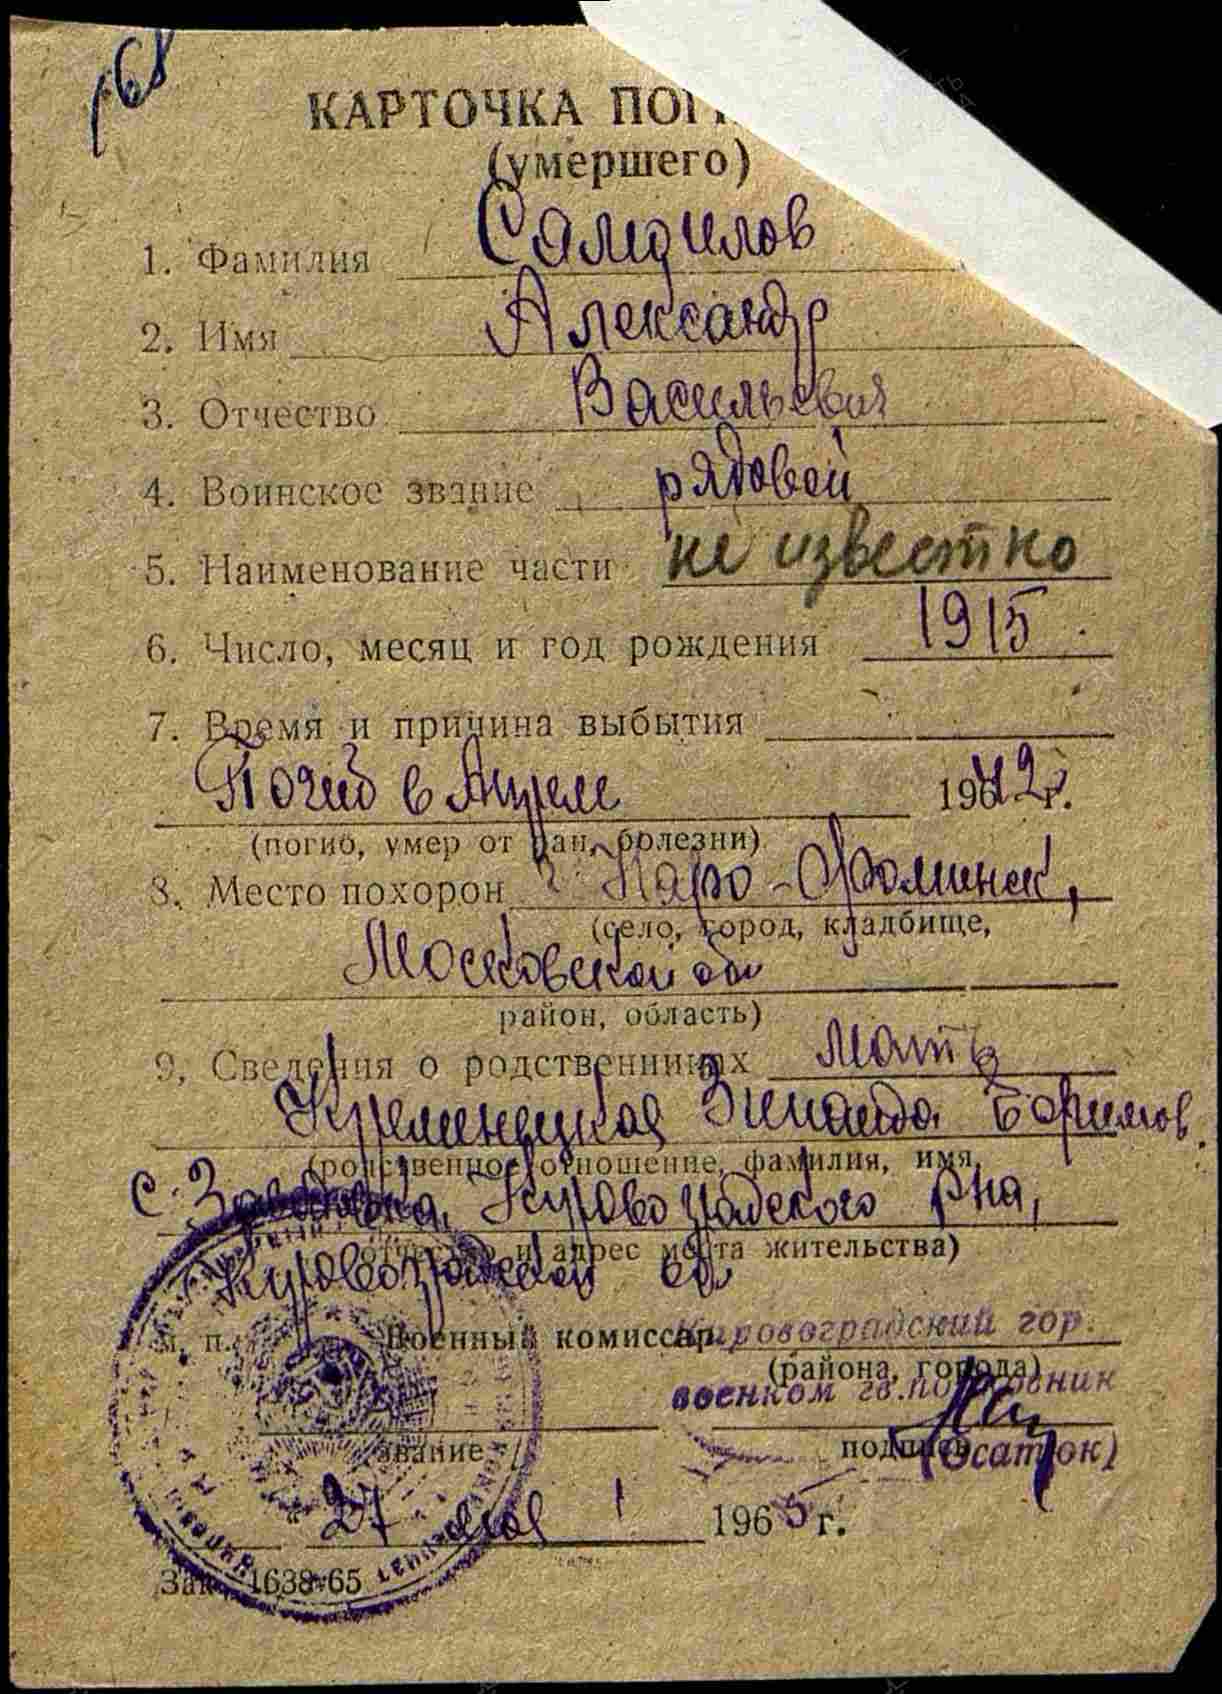 168
КАРТОЧКА ПОГИ
(умершего)
1. Фамилия Самойлов
2. Имя Александр
3. Отчество Васильевич
4. Воинское звание рядовой
5. Наименование части не известно
6. Число, месяц и год рождения 1915
7. Время и причина выбытия
Погиб в Апреле 1942 г.
(погиб, умер от ран, болезни)
8. Место похорон г Наро-Фоминск,
(село, город, кладбище,
Московской обл
район, область)
9. Сведения о родственниках мать
Кременецкая Зинаида Ефимов.
(родственное отношение, фамилия, имя,
с. Кировоградского р-на,
отчество и адрес места жительства)
Кировоградской обл
м. п. Военный комиссар Кировоградский гор.
(района, города)
военком гв. полковник
звание подпись (Осатюк)
27 мая 1965 г.
Зак. 1638-65